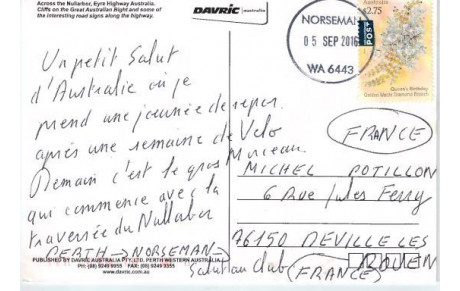 Across the Nullarbor, Eyre Highway Australia.
Cliffs on the Great Australian Bight and some of
the interesting road signs along the highway.
DAVRIC australia
NORSEMAN
05 SEP 2016
WA 6443
POST
Australia
$2.75
Queen's Birthday
Un petit Salut
d'Australie où je
prend une journée de repos
après une semaine de Velo
Demain c'est le gros Morceau
qui commence avec la
traversée du Nullarbor
PERTH → NORSEMAN →
Salut au club
FRANCE
MICHEL POTILLON
6 Rue Jules Ferry
76150 DEVILLE LES
ROUEN
(FRANCE)
PUBLISHED BY DAVRIC AUSTRALIA PTY. LTD. PERTH WESTERN AUSTRALIA
PH: (08) 9249 9055 FAX: (08) 9249 9355
www.davric.com.au